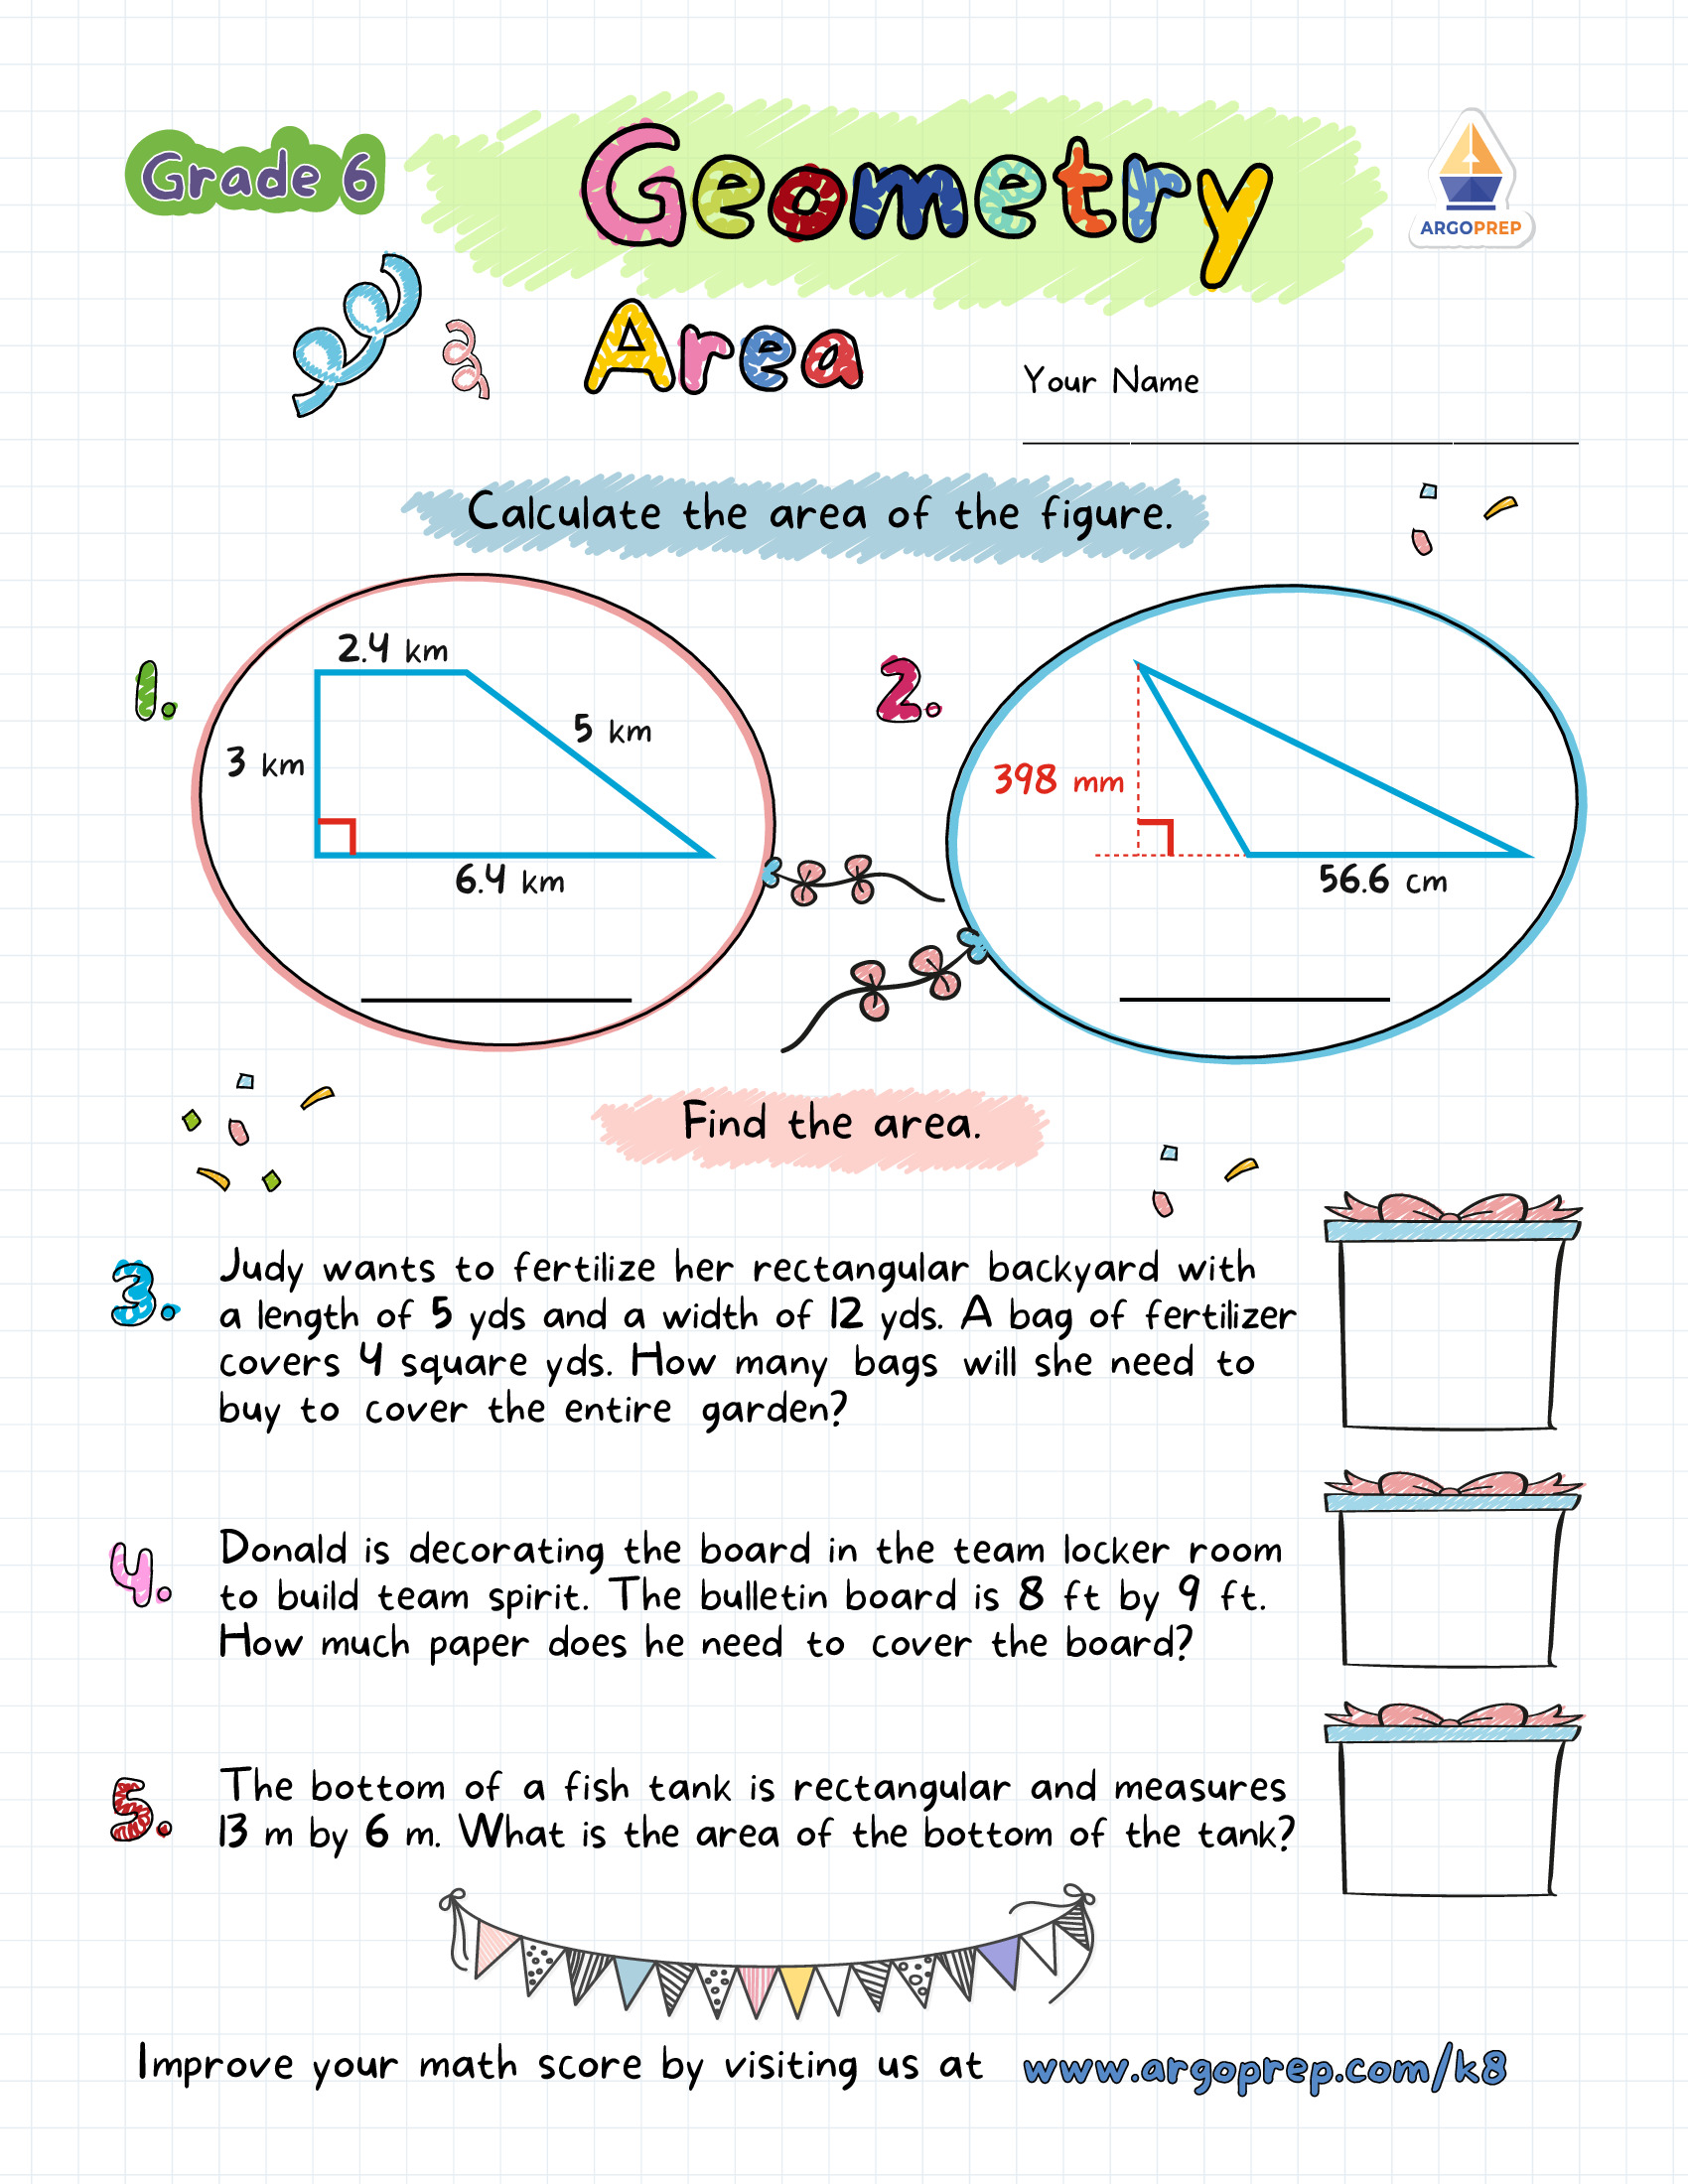 Grade 6
Geometry
ARGOPREP
Area
Your Name
Calculate the area of the figure.
1.
2.4 km
3 km
5 km
6.4 km
2.
398 mm
56.6 cm
Find the area.
3.
Judy wants to fertilize her rectangular backyard with
a length of 5 yds and a width of 12 yds. A bag of fertilizer
covers 4 square yds. How many bags will she need to
buy to cover the entire garden?
4.
Donald is decorating the board in the team locker room
to build team spirit. The bulletin board is 8 ft by 9 ft.
How much paper does he need to cover the board?
5.
The bottom of a fish tank is rectangular and measures
13 m by 6 m. What is the area of the bottom of the tank?
Improve your math score by visiting us at www.argoprep.com/k8